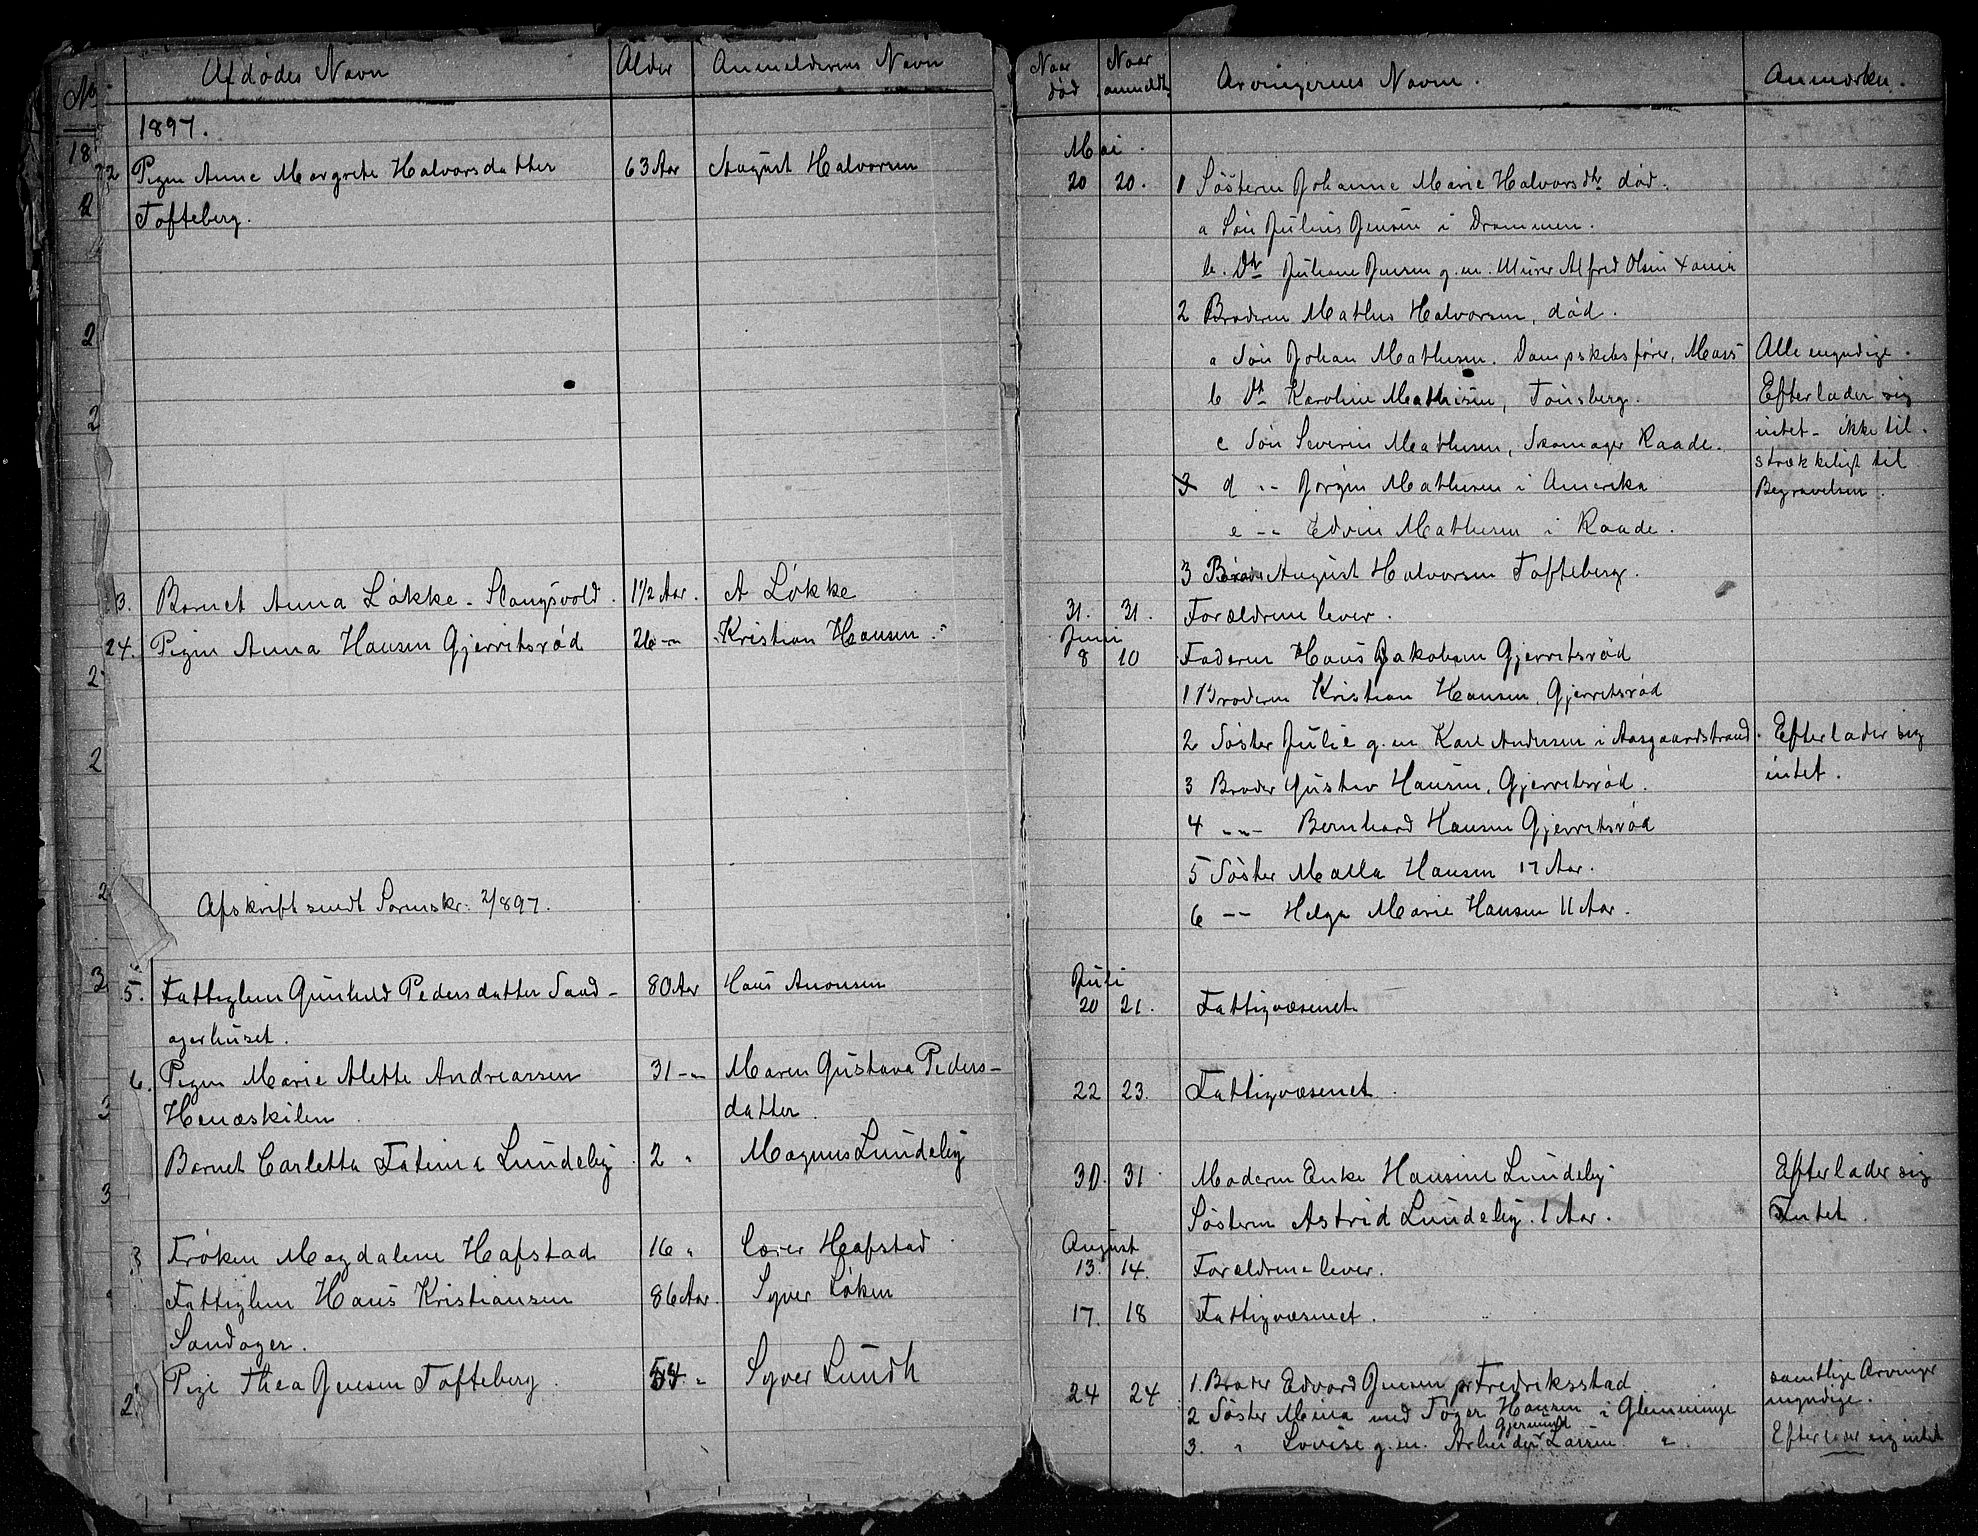 No
Afdødes Navn
Alder
Anmelderens Navn
1897.
18
22 Pigen Anne Margrete Halvorsdatter 63 Aar August Halvorsen
Tofteberg.
23. Barnet Anna Løkke - Slangsvold. 1½ Aar. A Løkke
24. Pigen Anna Hansen Gjerritsrød 26 -"- Kristian Hansen.
Afskrift sendt Sorenskr. 2/897.
5. Fattiglem Gunhild Pedersdatter Sand- 80 Aar Hans Aronsen
agerhuset.
6. Pigen Marie Alette Andreassen 31 -"- Maren Gustava Peders-
Henæskilen datter.
Barnet Carletta Fatima Lundeby. 2 " Magnus Lundeby
Frøken Magdalene Hafstad 16 " Hafstad
Fattiglem Hans Kristiansen 86 Aar. Syver Løken
Sandager.
Pige Thea Jensen Tofteberg. 54 " Syver Lundh
Naar død
Naar anmeldt.
Arvingernes Navn.
Anmærkn.
Mai.
20 20. 1 Søsteren Johanne Marie Halvorsdtr død.
a Søn Julius Jensen i Drammen.
b. Dtr Juliane Jensen g. m. Murer Alfred Olsen Xania
2 Broderen Mathus Halvorsen, død.
a Søn Johan Mathesen. Dampskibsfører, Moss Alle myndige.
b Dtr Karoline Mathisen, Tønsberg. Efterlader sig
c Søn Severin Mathesen, Skomager Raade. intet - ikke til-
strækkeligt til
d -"- Jørgen Mathesen i Amerika Begravelsen.
e -"- Edvin Mathesen i Raade.
3 Broder August Halvorsen Tofteberg.
31. 31. Forældrene lever.
Juni
8 10 Faderen Hans Jakobsen Gjerritsrød
1 Broderen Kristian Hansen, Gjerritsrød
2 Søster Julie g. m. Karl Andersen i Aasgaardstrand. Efterlader sig
intet.
3 Broder Gustav Hansen, Gjerritsrød.
4 -"- Bernhard Hansen Gjerritsrød
5 Søster Malla Hansen 17 Aar.
6 -"- Helga Marie Hansen 11 Aar.
Juli
20 21. Fattigvæsenet.
22 23. Fattigvæsenet.
30. 31. Moderen Enke Hansine Lundeby. Efterlader sig
Søsteren Astrid Lundeby. 1 Aar. Intet.
August
13. 14. Forældrene lever.
17. 18 Fattigvæsenet.
24 24 1. Broder Edvard Jensen pr Fredriksstad samtlige Arvinger
2 Søster Mina med Hansen i Glemminge myndige.
Gjermund
3. " Lovise g. m. Arbeider Larsen " Efterlader sig intet